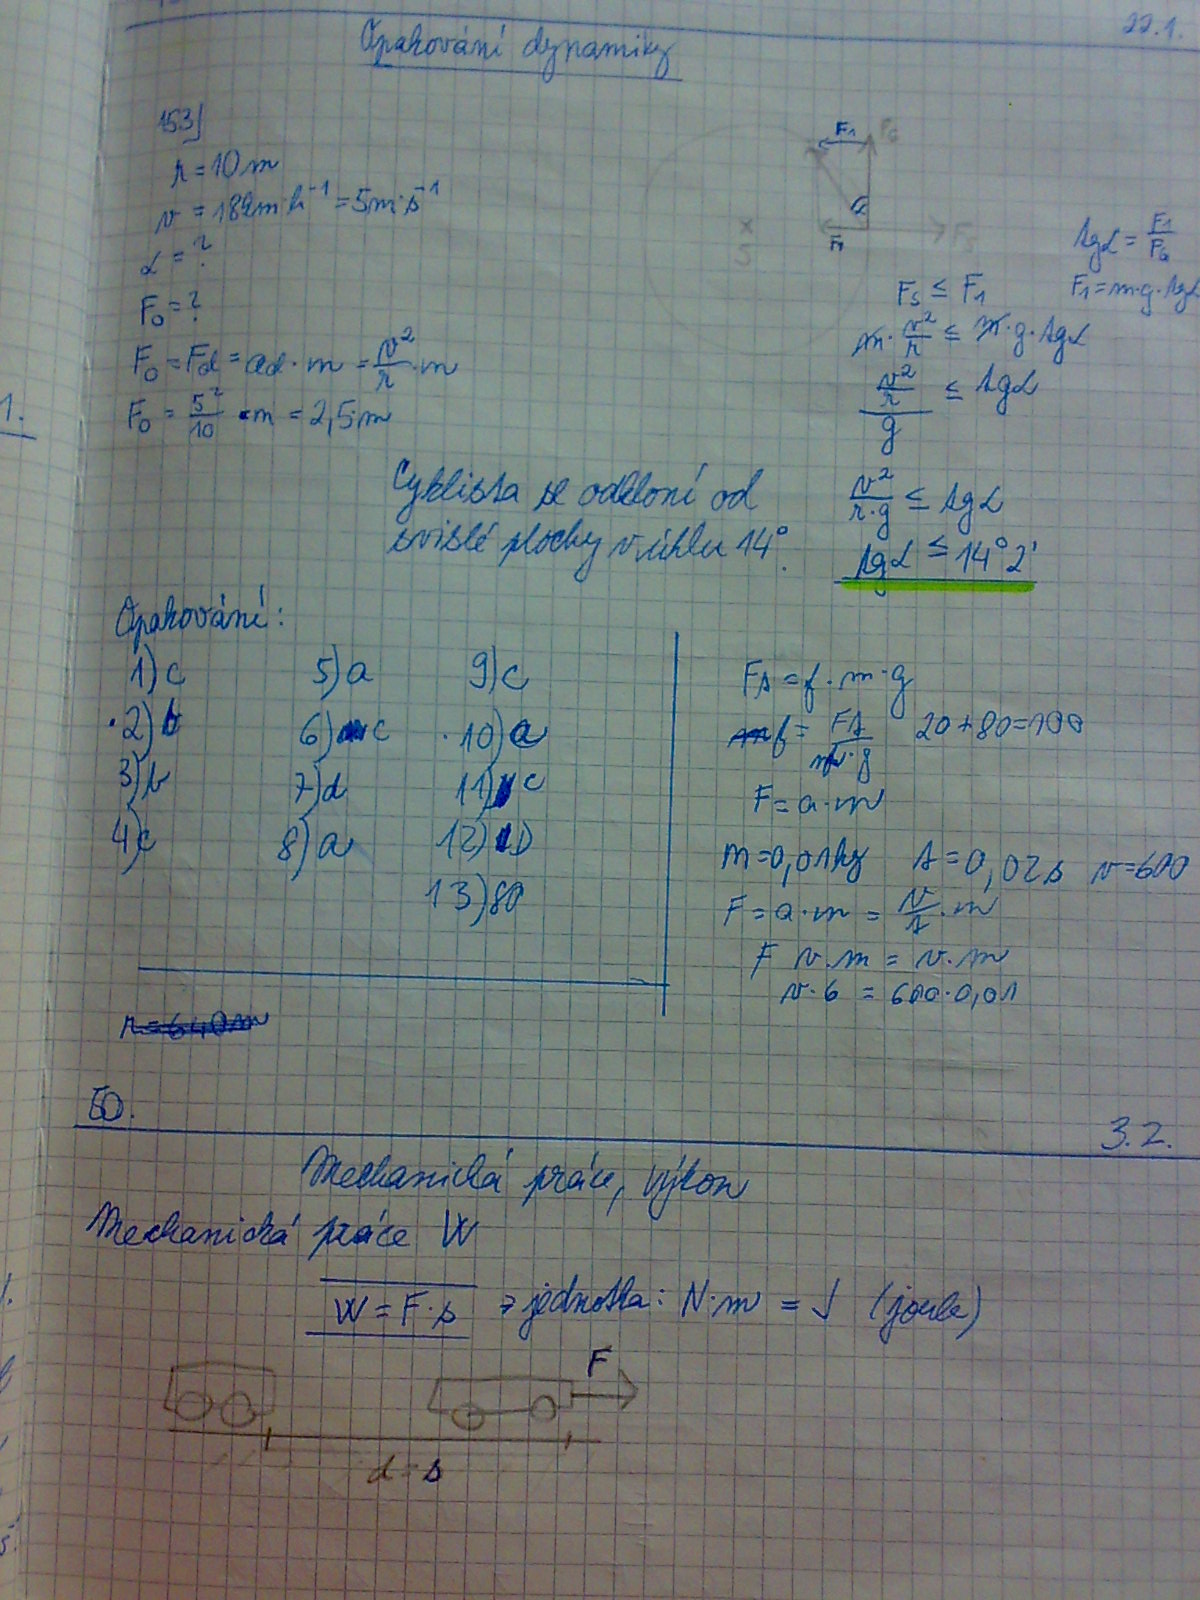 22.1.
Opakování dynamiky
153)
r = 10 m
v = 18km·h⁻¹ = 5m·s⁻¹
α = ?
F₀ = ?
F₀ = Fd = ad · m = v²/r · m
F₀ = 5²/10 · m = 2,5·m
F₁
FG
α
F₁
FS
x
S
tgα = F₁/FG
F₁ = m·g·tgα
FS ≤ F₁
m · v²/r ≤ m·g·tgα
v²/r / g ≤ tgα
v²/r·g ≤ tgα
tgα ≤ 14°2'
Cyklista se odkloní od
svislé plochy v úhlu 14°.
1.
Opakování:
1) c 5) a 9) c
2) b 6) c 10) a
3) b 7) d 11) c
4) c 8) a 12) D
13) 80
Ft = f · m · g
f = Ft/m·g 20+80=100
F = a·m
m=0,01kg t=0,02s v=600
F = a·m = v/t · m
F v·m = v·m
v·6 = 600·0,01
r = 640m
50.
3.2.
Mechanická práce, výkon
Mechanická práce W
W = F·s → jednotka: N·m = J (joule)
F
d = s